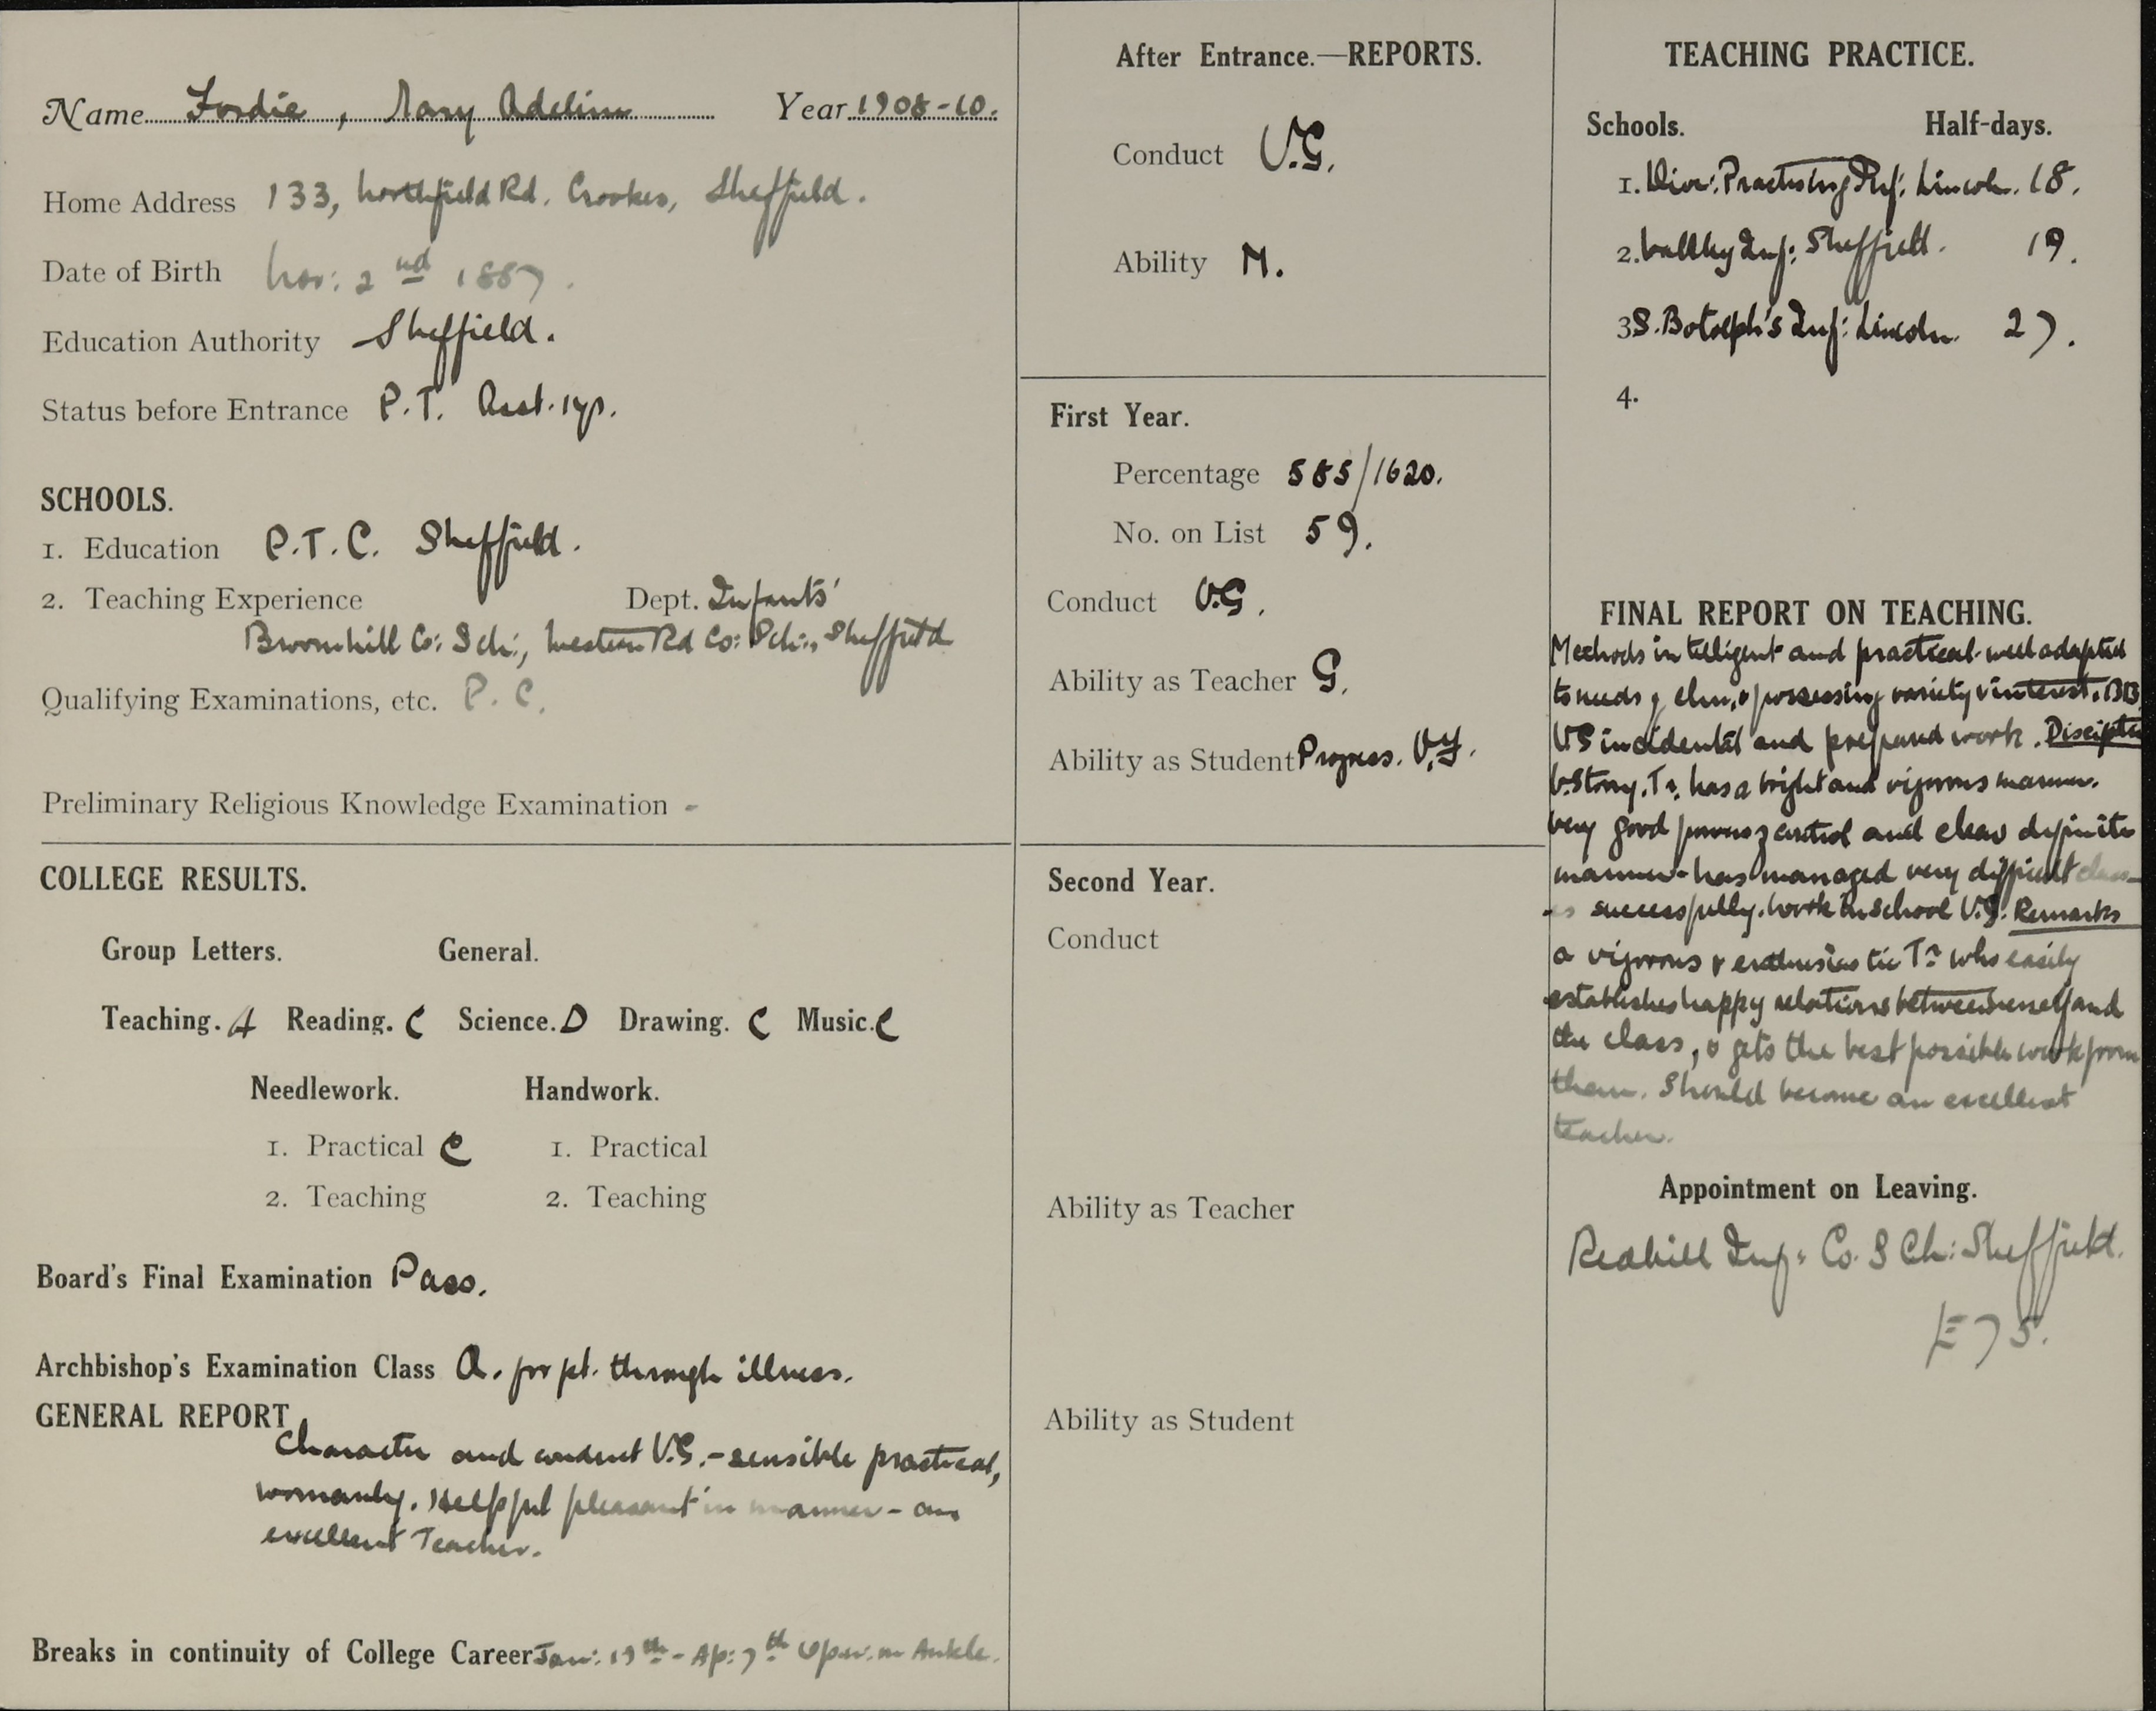 Name Fordie, Mary Adeline Year 1908-10.
Home Address 133, Northfield Rd. Crookes, Sheffield.
Date of Birth Nov: 2nd 1887.
Education Authority Sheffield.
Status before Entrance P.T. Asst. 1yr.
SCHOOLS.
1. Education P.T.C. Sheffield.
2. Teaching Experience Dept. Infants'
Broomhill Co: Sch:, Western Rd Co: Sch:, Sheffield
Qualifying Examinations, etc. P.C.
Preliminary Religious Knowledge Examination -
COLLEGE RESULTS.
Group Letters. General.
Teaching. A Reading. C Science. D Drawing. C Music. C
Needlework. Handwork.
1. Practical C 1. Practical
2. Teaching 2. Teaching
Board's Final Examination Pass.
Archbishop's Examination Class A. for pt. through illness.
GENERAL REPORT
Character and conduct V.G. - sensible practical,
womanly. Helpful pleasant in manner - an
excellent Teacher.
Breaks in continuity of College Career Jan: 19th - Ap: 7th Oper: on Ankle.
After Entrance.—REPORTS.
Conduct V.G.
Ability M.
First Year.
Percentage 585/1620.
No. on List 59.
Conduct V.G.
Ability as Teacher G.
Ability as Student Progress. V.G.
Second Year.
Conduct
Ability as Teacher
Ability as Student
TEACHING PRACTICE.
Schools. Half-days.
1. Practising Inf: Lincoln. 18.
2. Inf: Sheffield. 19.
3 S. Botolph's Inf: Lincoln. 27.
4.
FINAL REPORT ON TEACHING.
Methods intelligent and practical - well adapted
to needs of chn, & possessing variety & interest. BB
VG incidental and prepared work. Discipline
V. Strong. Tr. has a bright and vigorous manner.
Very good powers of control and clear definite
manner - has managed very difficult class-
es successfully. Work in school V.G. Remarks
a vigorous & enthusiastic Tr. who easily
establishes happy relations between herself and
the class, & gets the best possible work from
them. Should become an excellent
teacher.
Appointment on Leaving.
Redhill Inf: Co. Sch: Sheffield.
£75.